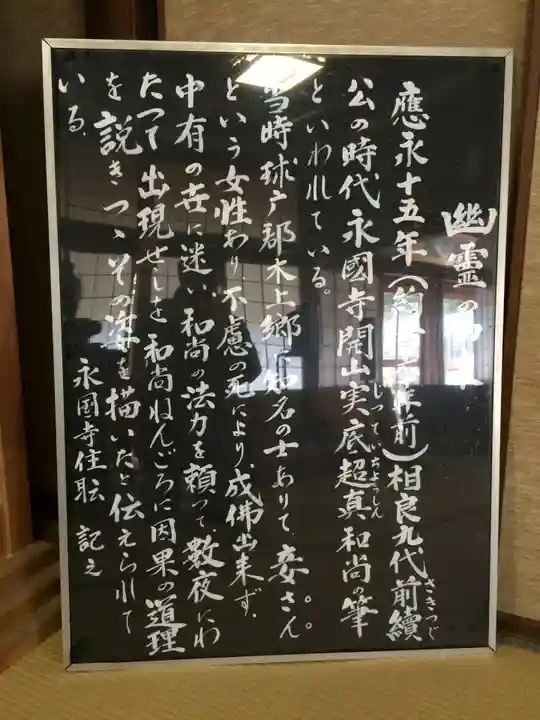 幽霊の
應永十五年(約 年前)相良九代前續
さきつぐ
公の時代永國寺開山実底超真和尚の筆
じっていちょうしん
といわれている。
当時球戸郡木上郷に知名の士ありて、妾さん
という女性あり不慮の死により、成佛出来ず、
中有の世に迷い、和尚の法力を頼って、数夜にわ
たって出現せしを和尚ねんごろに因果の道理
を説きつゝその姿を描いたと伝えられて
いる
永国寺住職 記之